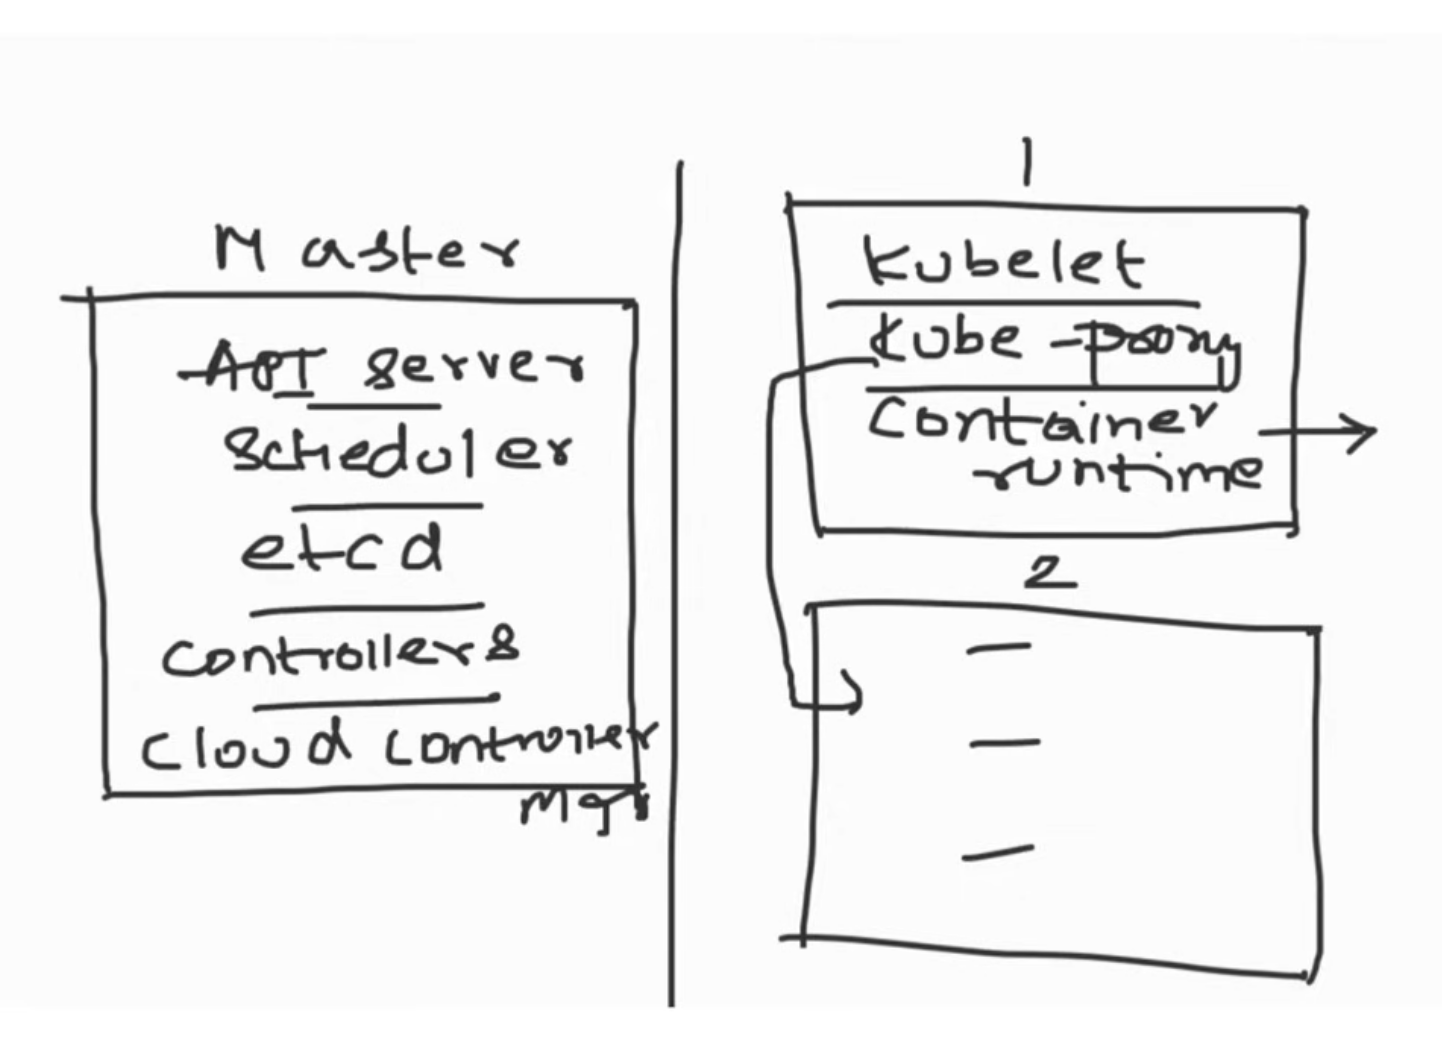 Master
API server
Scheduler
etcd
controllers
cloud controller
Mgr
1
Kubelet
Kube-Proxy
Container
runtime
2